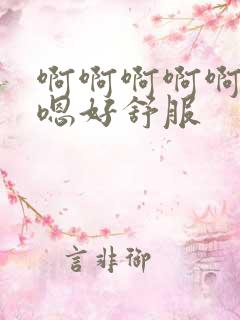 啊啊啊啊啊
嗯好舒服
言非御